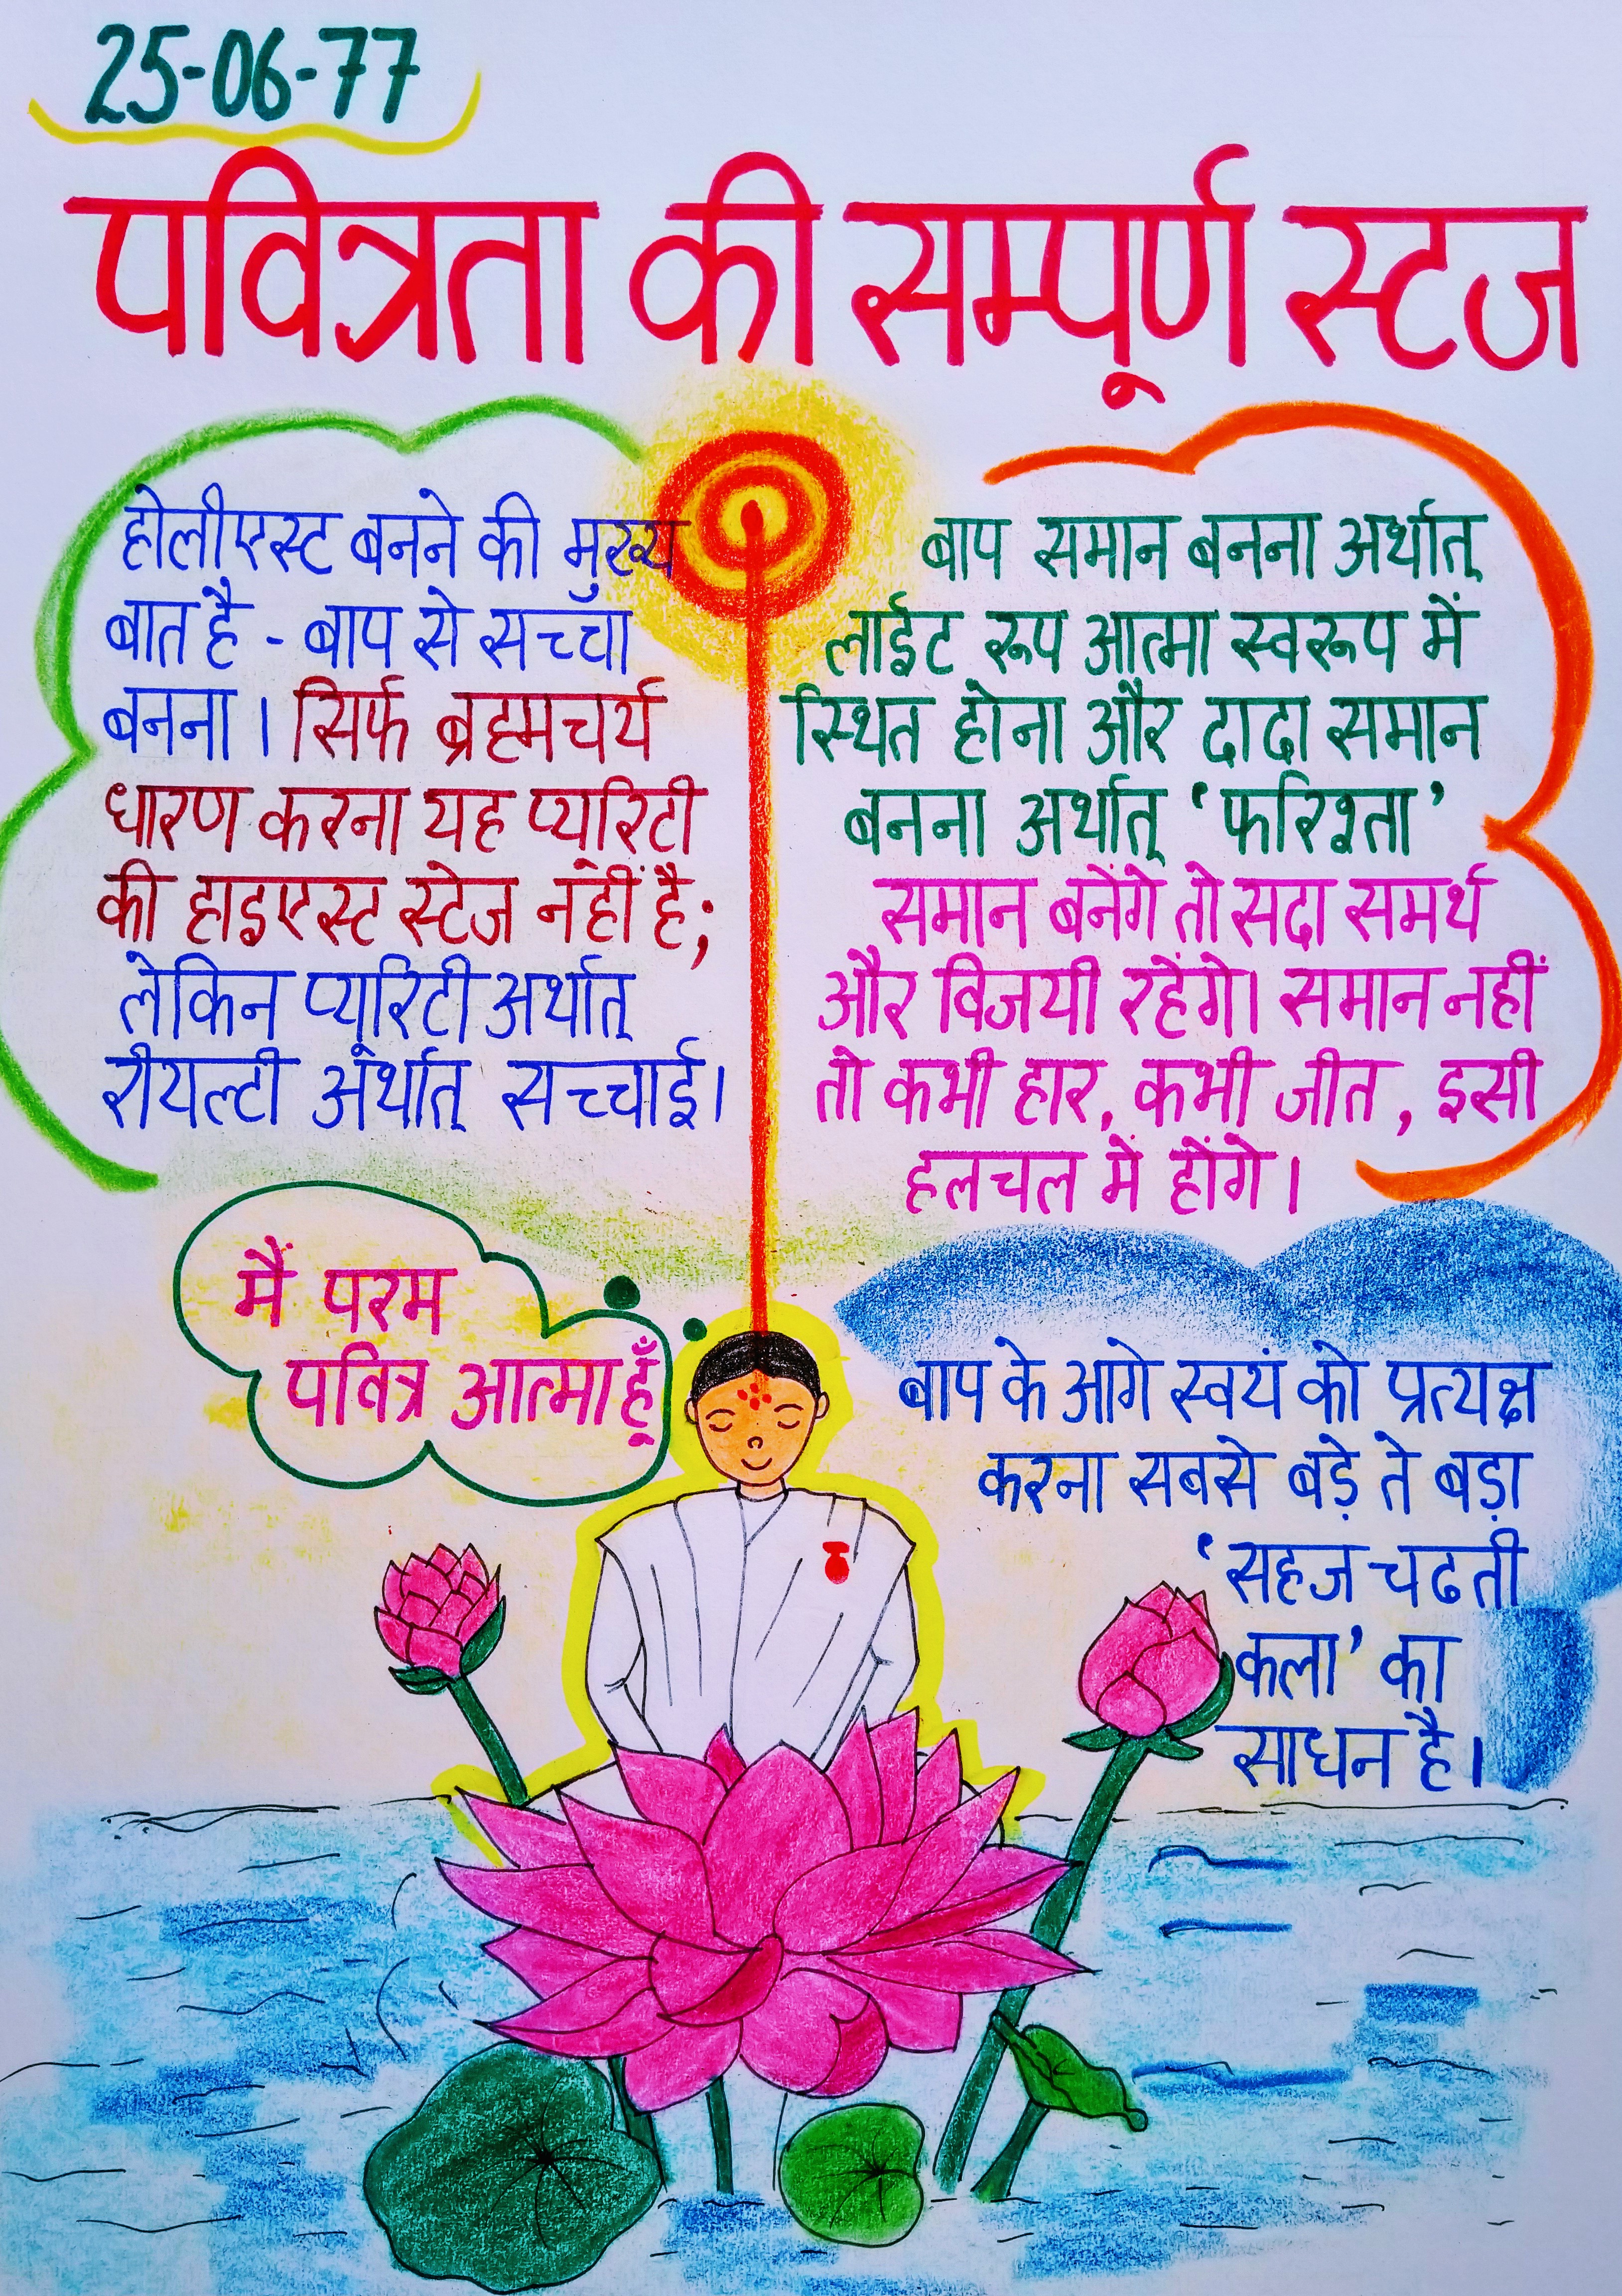 25-06-77
पवित्रता की सम्पूर्ण स्टज
होलीएस्ट बनने की मुख्य
बात है - बाप से सच्चा
बनना। सिर्फ ब्रह्मचर्य
धारण करना यह प्यूरिटी
की हाइएस्ट स्टेज नहीं है;
लेकिन प्यूरिटी अर्थात्
रीयल्टी अर्थात् सच्चाई।
बाप समान बनना अर्थात्
लाईट रूप आत्मा स्वरूप में
स्थित होना और दादा समान
बनना अर्थात् ‘फरिश्ता’
समान बनेंगे तो सदा समर्थ
और विजयी रहेंगे। समान नहीं
तो कभी हार, कभी जीत, इसी
हलचल में होंगे।
मैं परम
पवित्र आत्मा हूँ
बाप के आगे स्वयं को प्रत्यक्ष
करना सबसे बड़े ते बड़ा
‘सहज चढती
कला’ का
साधन है।